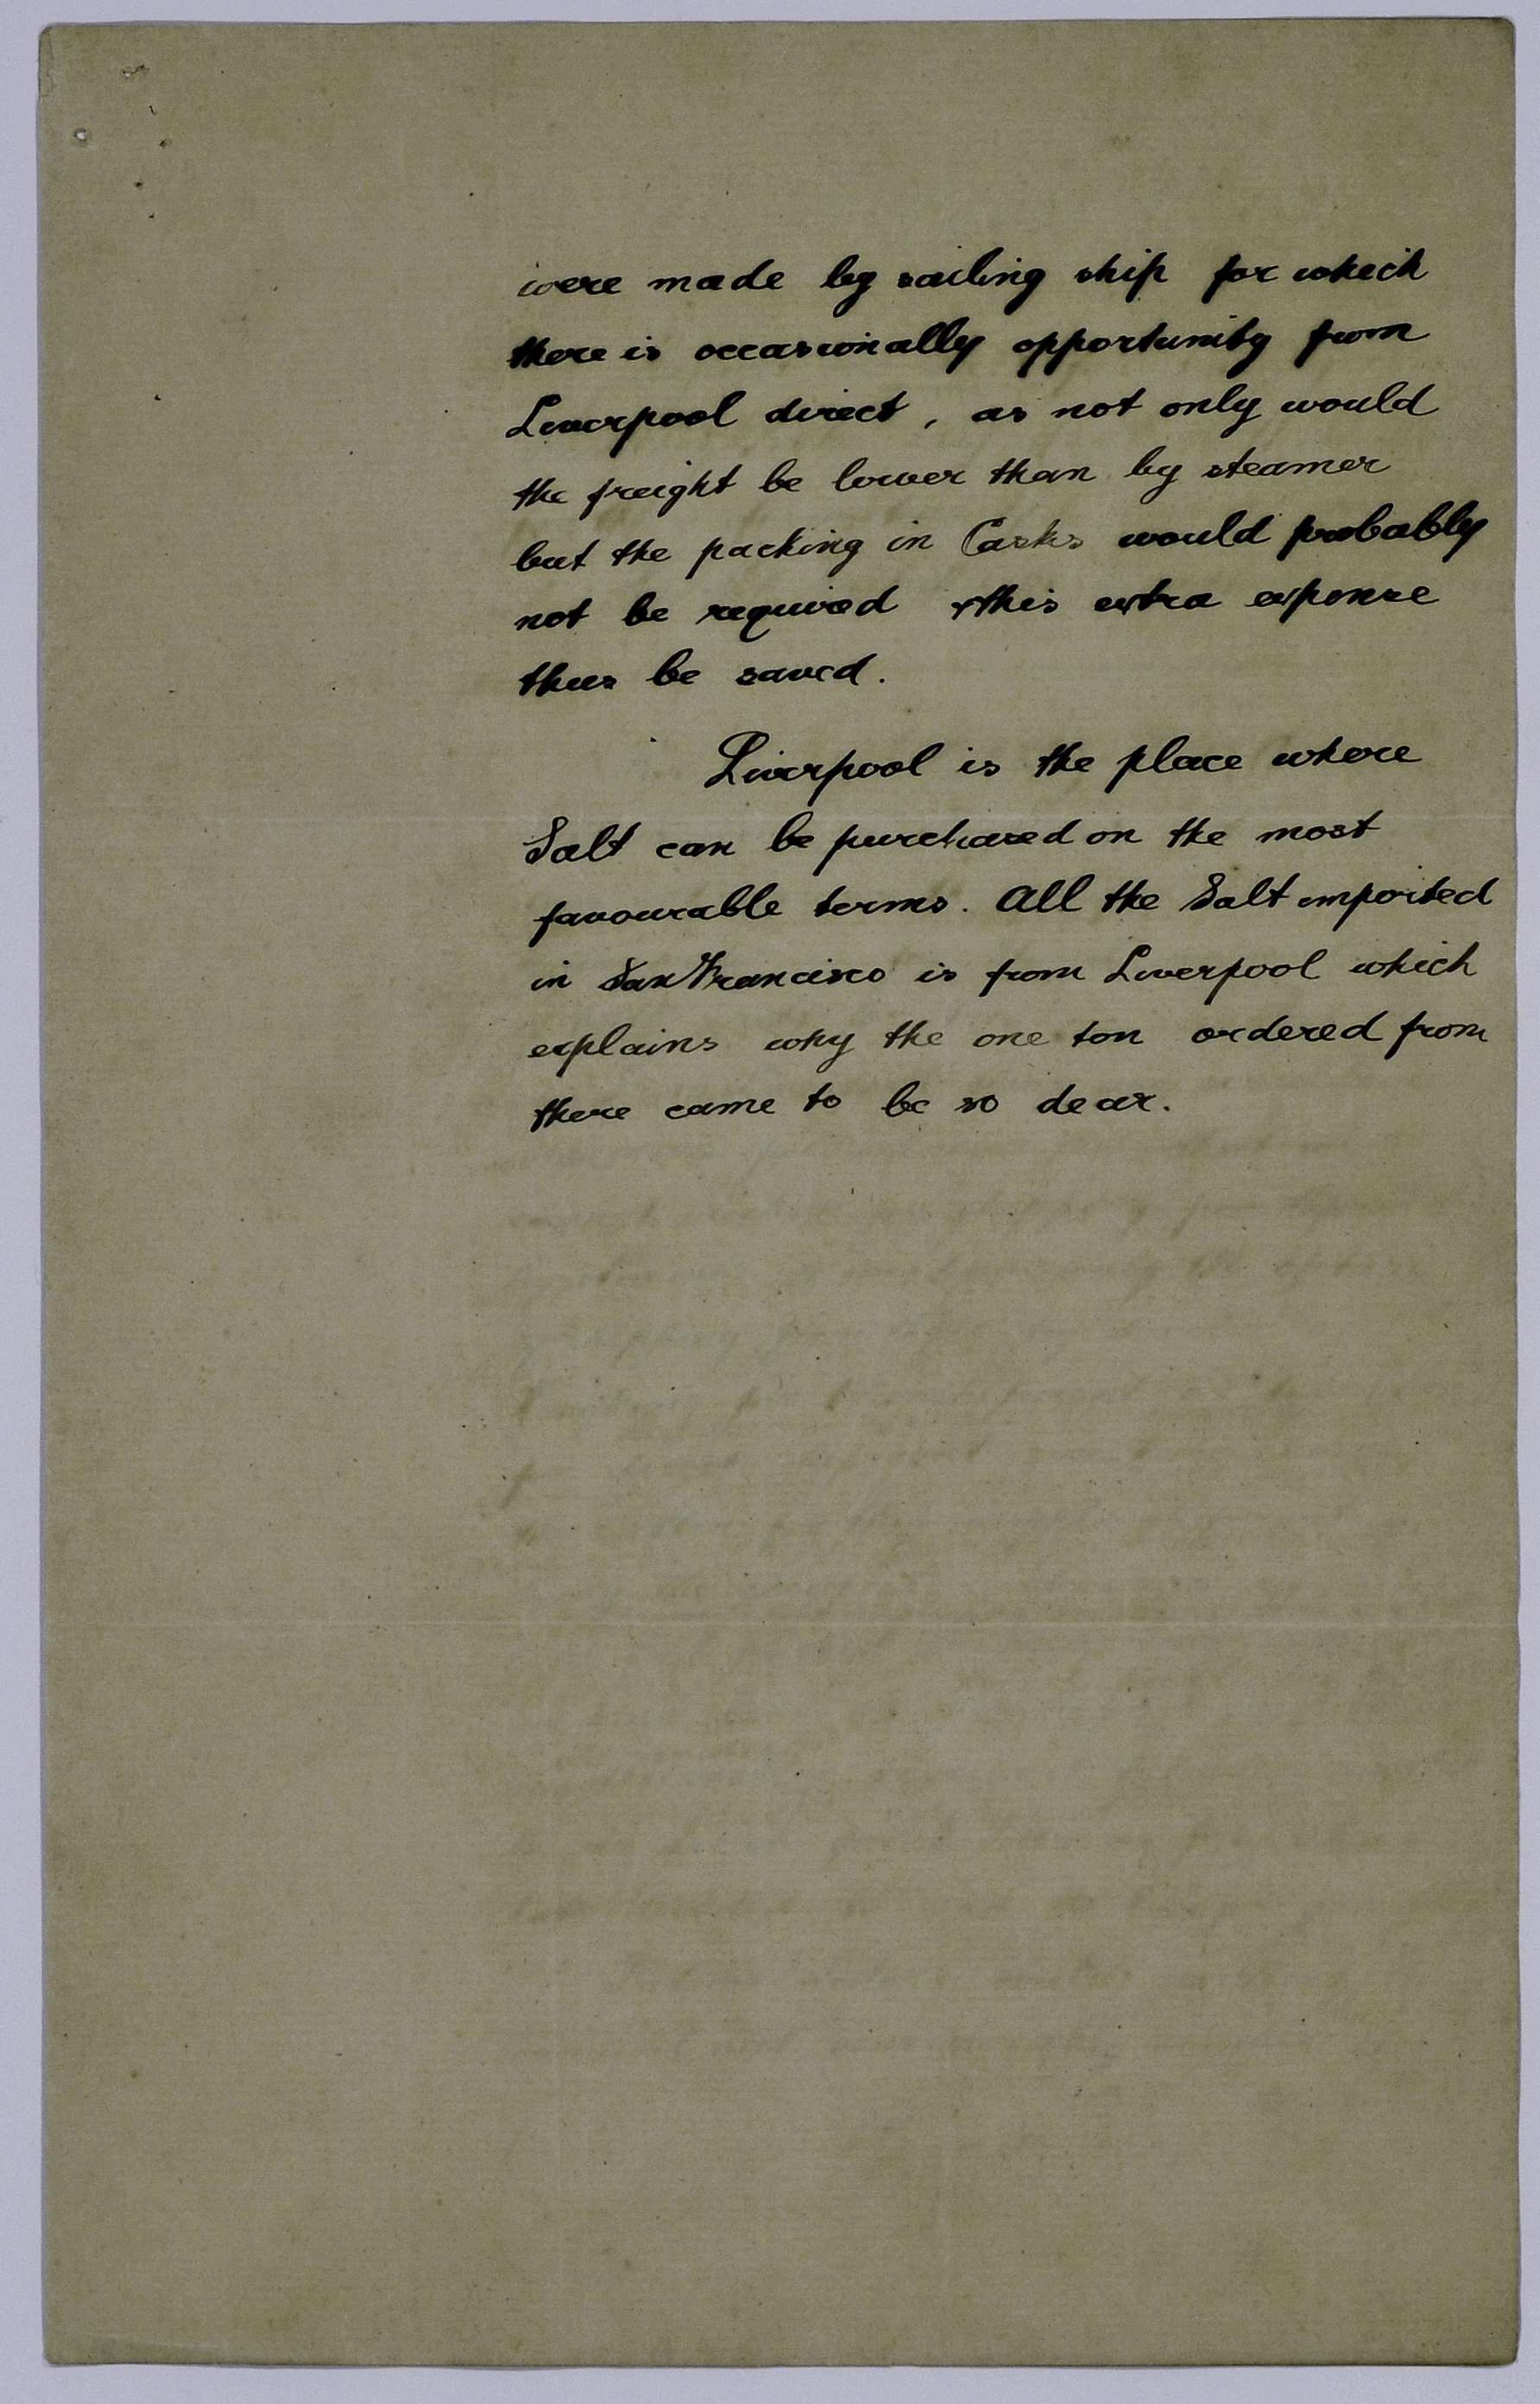 were made by sailing ship for which
there is occasionally opportunity from
Liverpool direct, as not only would
the freight be lower than by steamer
but the packing in Casks would probably
not be required & this extra expense
thus be saved.
Liverpool is the place where
Salt can be purchased on the most
favourable terms. All the Salt imported
in San Francisco is from Liverpool which
explains why the one ton ordered from
there came to be so dear.